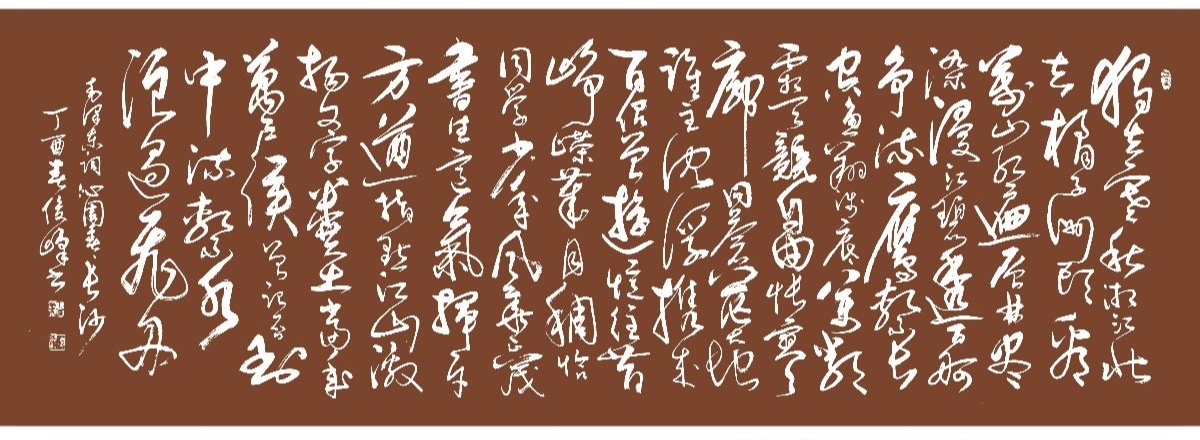 独立寒秋湘江北
去橘子洲头看
萬山红遍层林尽
染漫江碧透百舸
争流鹰击长
空鱼翔浅底万类
霜天競自由怅寥
廓问苍茫大地
谁主沈浮携来
百侣曾遊忆往昔
峥嵘岁月稠恰
同学少年风华正茂
書生意氣揮斥
方遒指点江山激
扬文字粪土当年
萬户侯曾记否到
中流击水
浪遏飞舟
毛泽东词沁园春长沙
丁酉春俊峰书